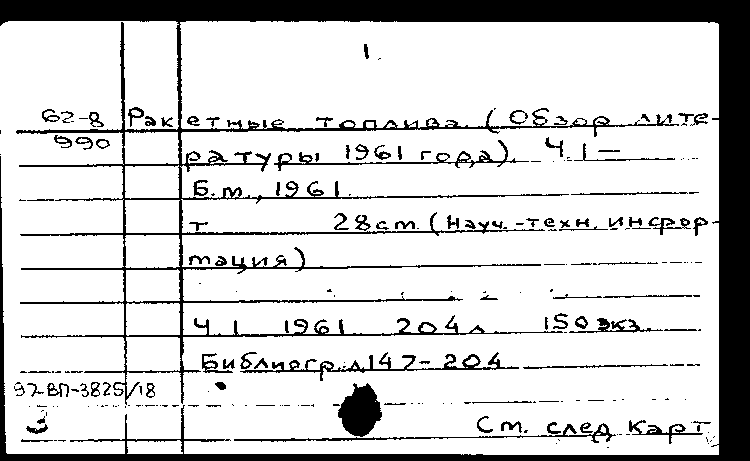 1.
62-8 Ракетные топлива. (Обзор лите-
990 ратуры 1961 года). Ч.1—
Б.м., 1961.
т 28см. (Науч.-техн. инфор-
мация)
Ч.1 1961 204л. 150экз.
Библиогр.л147-204
97-ВП-3825/18
З См. след карт